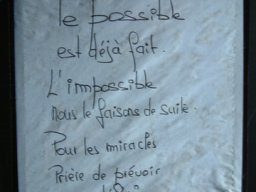 le possible
est déjà fait.
L'impossible
Nous le faisons de suite.
Pour les miracles
Prière de prévoir